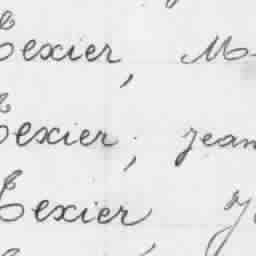 Texier, M
Texier, jean
Texier